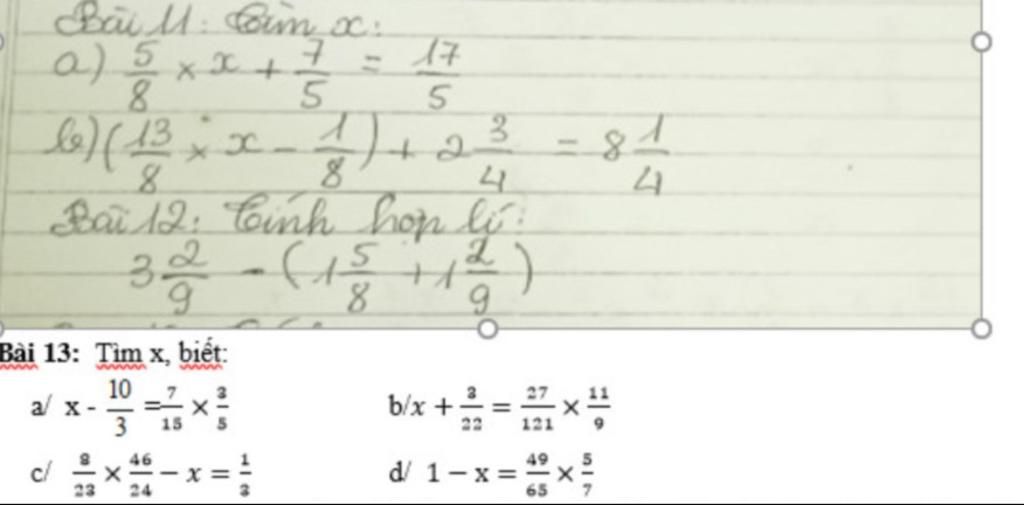 Bài 11: Tìm x:
a) 5/8 × x + 7/5 = 17/5
b) (13/8 × x - 1/8) + 2 3/4 = 8 1/4
Bài 12: Tính hợp lí:
3 2/9 - (1 5/8 + 1 2/9)
Bài 13: Tìm x, biết:
a/ x - 10/3 = 7/15 × 3/5 b/ x + 3/22 = 27/121 × 11/9
c/ 8/23 × 46/24 − x = 1/3 d/ 1 − x = 49/65 × 5/7